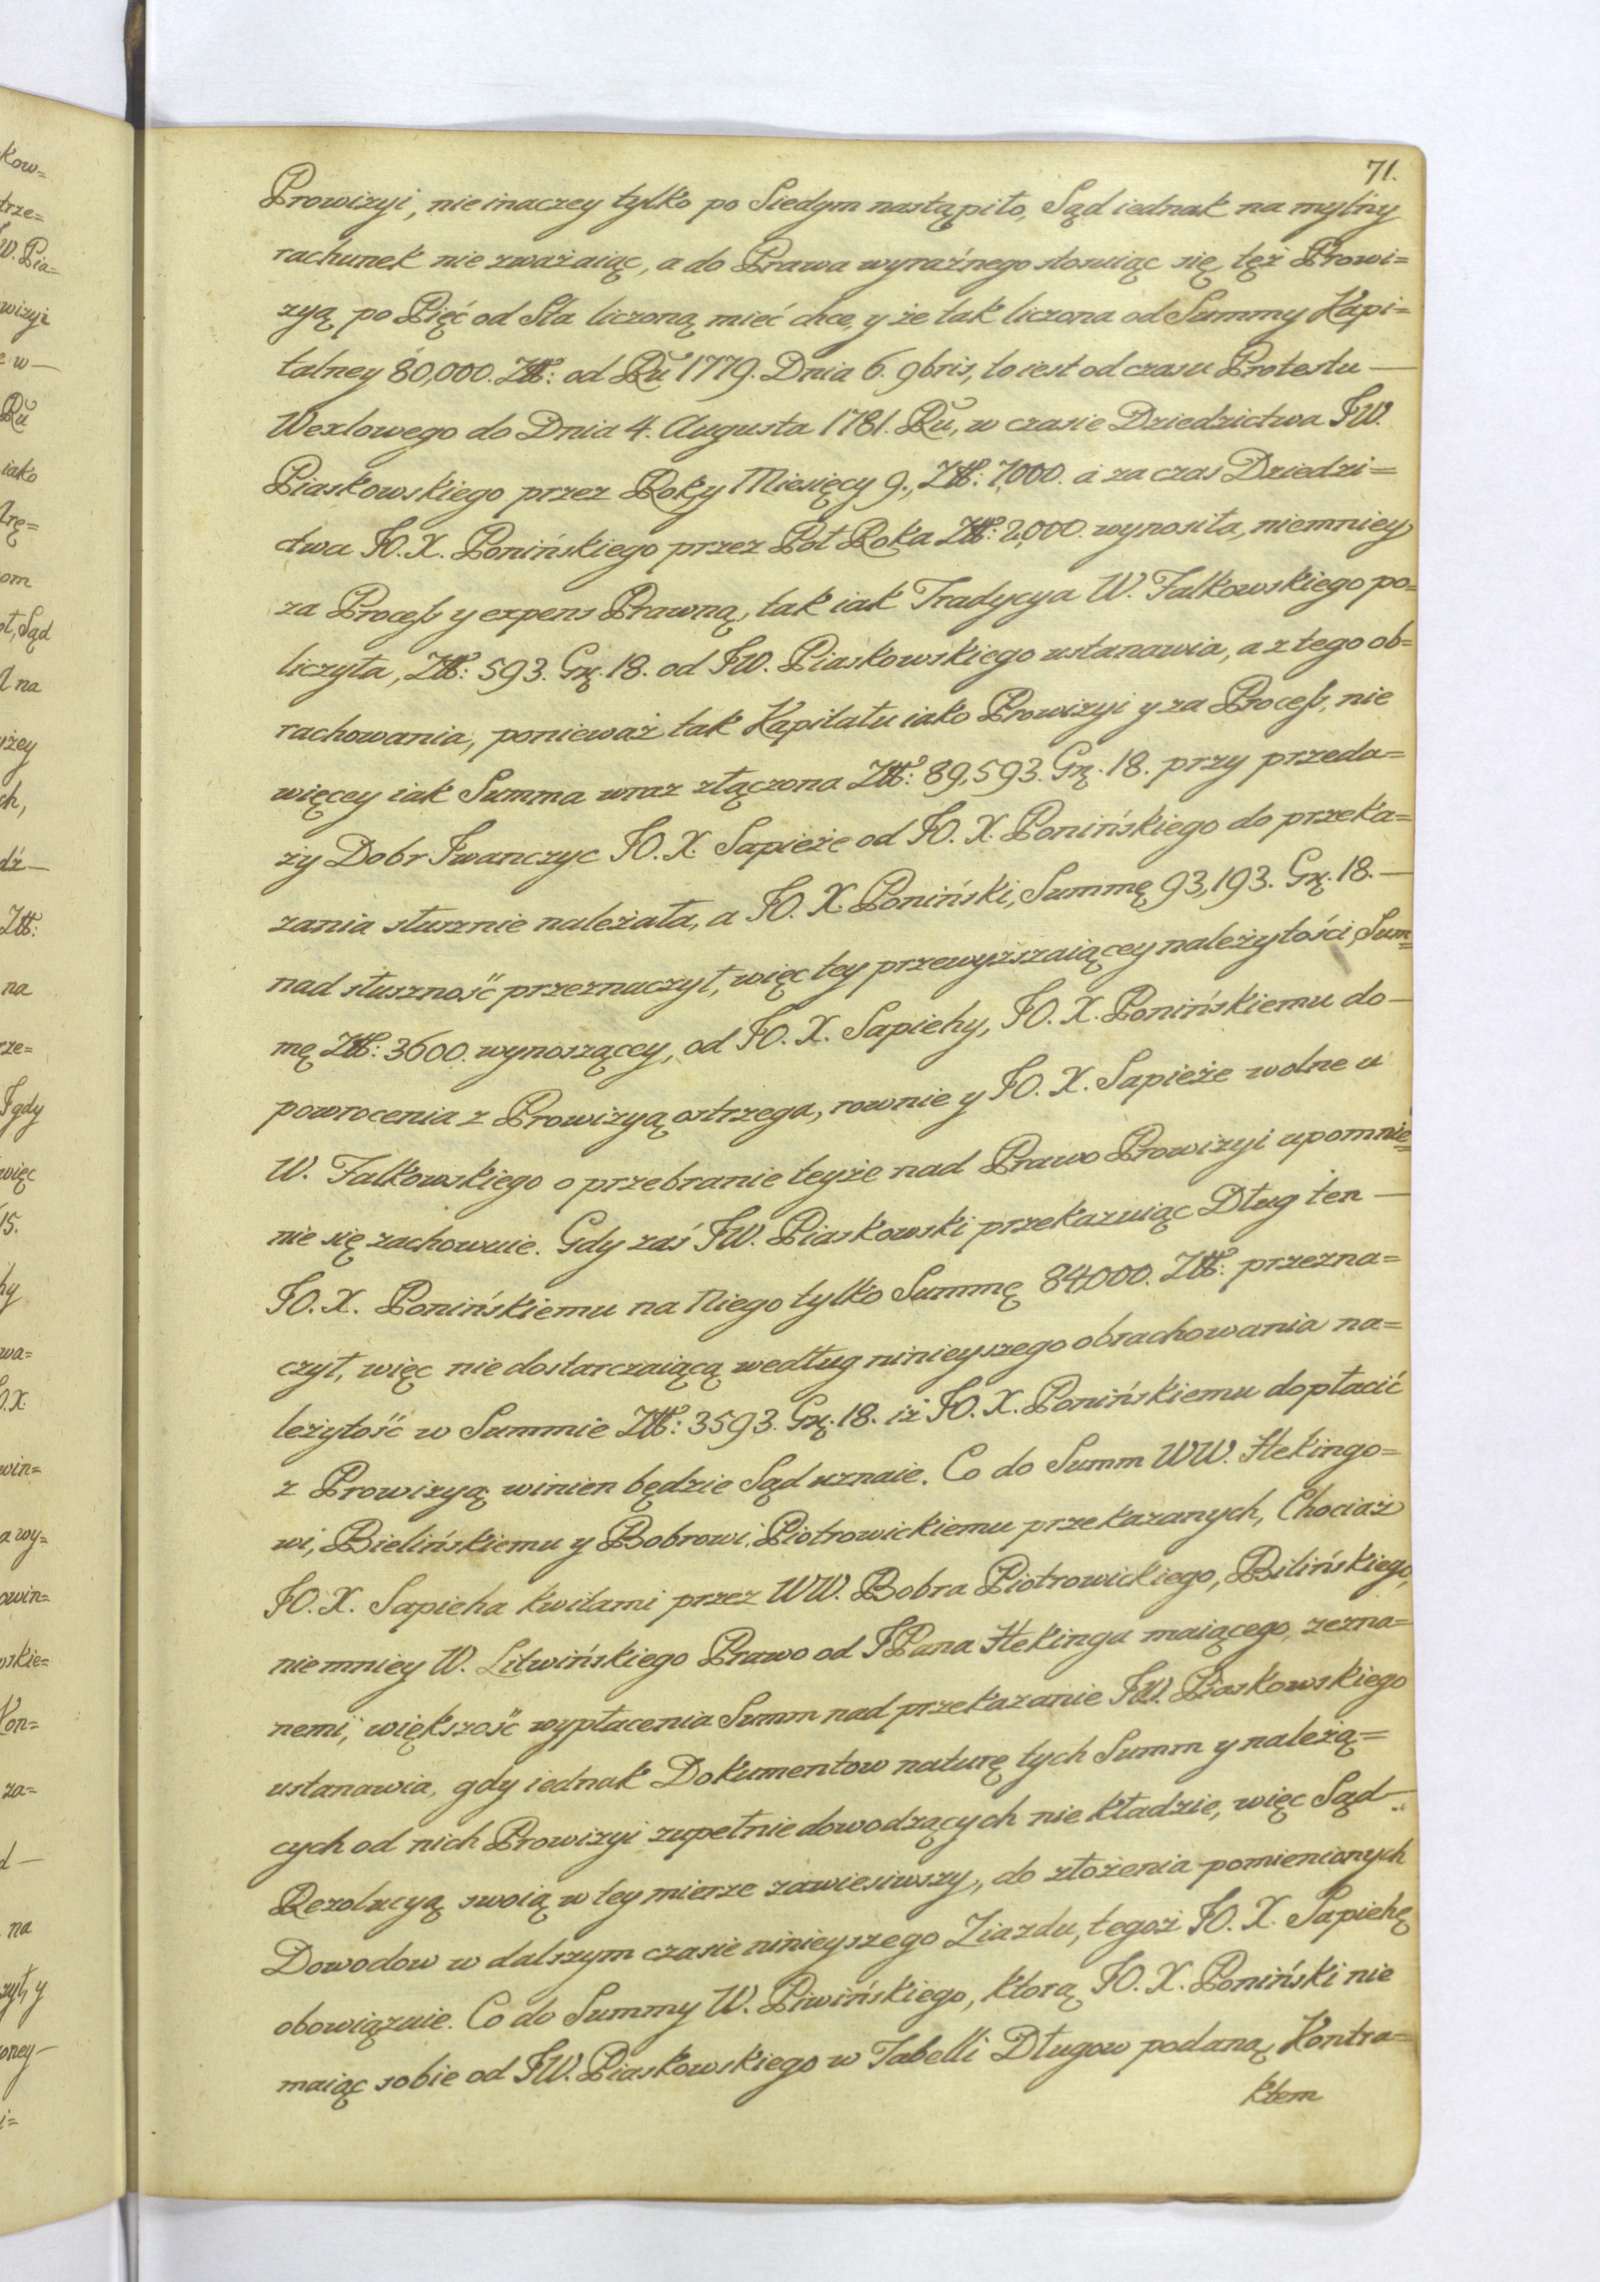 71.
Prowizyi, nie inaczey tylko po Siedym nastąpiło, Sąd iednak na mylny
rachunek nie zważaiąc, a do Prawa wyraźnego stosuiąc się, tęż Prowi=
zyą po Pięć od Sta liczoną mieć chce, y że tak liczona od Summy Kapi=
talney 80,000. Złł: od Ru 1779. Dnia 6. 9bris, to iest od czasu Protestu —
Wexlowego do Dnia 4. Augusta 1781. Ru, w czasie Dziedzictwa JW.
Piaskowskiego przez Rok y Miesięcy 9., Złł: 7,000. a za czas Dziedzi=
ctwa JO. X. Ponińskiego przez Poł Roka Złł: 2,000. wynosiła, niemniey
za Proceſs y expens Prawną, tak iak Tradycya W. Falkowskiego po=
liczyła, Złł: 593. Gr. 18. od JW. Piaskowskiego ustanawia, a z tego ob=
rachowania, ponieważ tak Kapitału iako Prowizyi y za Proceſs, nie
więcey iak Summa wraz złączona Złł: 89,593. Gr. 18. przy przeda=
ży Dobr Iwanczyc JO. X. Sapieże od JO. X. Ponińskiego do przeka=
zania słusznie należała, a JO. X. Poniński, Summę 93,193. Gr. 18. —
nad słuszność przeznaczył, więc tey przewyższaiącey należytości Sum=
mę Złł: 3600. wynoszącey, od JO. X. Sapiehy, JO. X. Ponińskiemu do —
powrocenia z Prowizyą ostrzega, rownie y JO. X. Sapieże wolne u
W. Falkowskiego o przebranie teyże nad Prawo Prowizyi upomnie=
nie się zachowuie. Gdy zaś JW. Piaskowski przekazuiąc Dług ten —
JO. X. Ponińskiemu na Niego tylko Summę 84,000. Złł: przezna=
czył, więc nie dostarczaiącą według ninieyszego obrachowania na=
leżytość w Summie Złł: 3593. Gr. 18. iż JO. X. Ponińskiemu dopłacić
z Prowizyą winien będzie Sąd uznaie. Co do Summ WW. Hekingo=
wi, Bielińskiemu y Bobrowi Piotrowickiemu przekazanych, Chociaż
JO. X. Sapieha kwitami przez WW. Bobra Piotrowickiego, Bilińskiego,
niemniey W. Litwińskiego Prawo od JPana Hekinga maiącego, zezna=
nemi, większość wypłacenia Summ nad przekazanie JW. Piaskowskiego
ustanawia, gdy iednak Dokumentow naturę tych Summ y należą=
cych od nich Prowizyi zupełnie dowodzących nie kładzie, więc Sąd —
Rezolucyą swoią w tey mierze zawiesiwszy, do złożenia pomienionych
Dowodow w dalszym czasie ninieyszego Ziazdu, tegoż JO. X. Sapiehę
obowiązuie. Co do Summy W. Piwińskiego, ktorą JO. X. Poniński nie
maiąc sobie od JW. Piaskowskiego w Tabelli Długow podaną, Kontra=
ktem